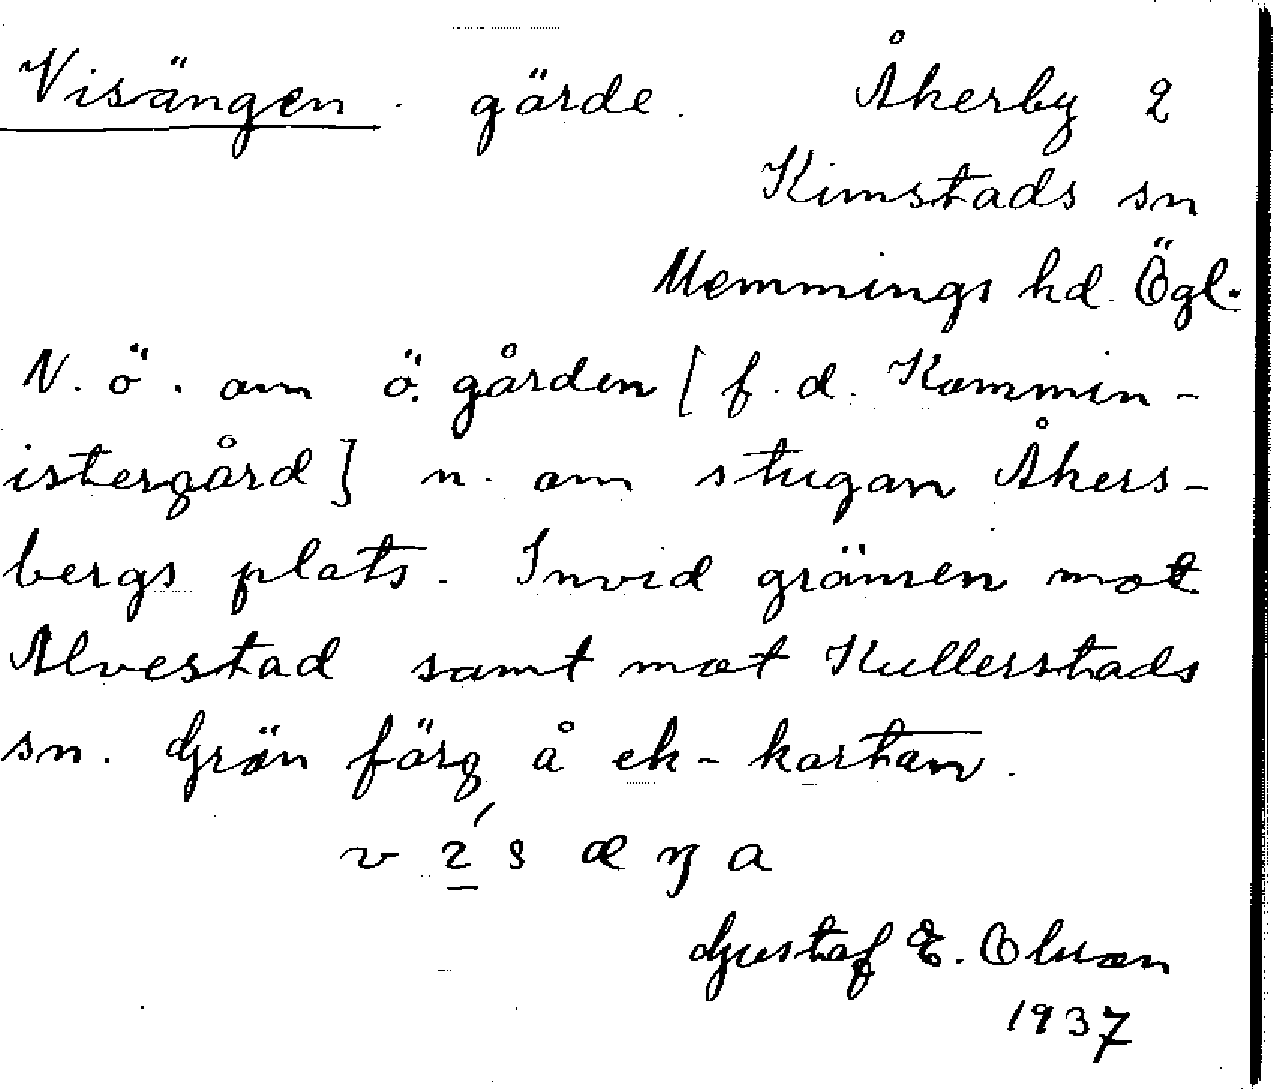 Visängen. gärde. Åkerby 2
Kimstads sn
Memmings hd. Ögl.
N. ö. om ö. gården [f.d. Kommin-
istergård] n. om stugan Åkers-
bergs plats. Invid gränsen mot
Alvestad samt mot Kullerstads
sn. Grön färg å ek-kartan.
Gustaf E. Olsson
1937